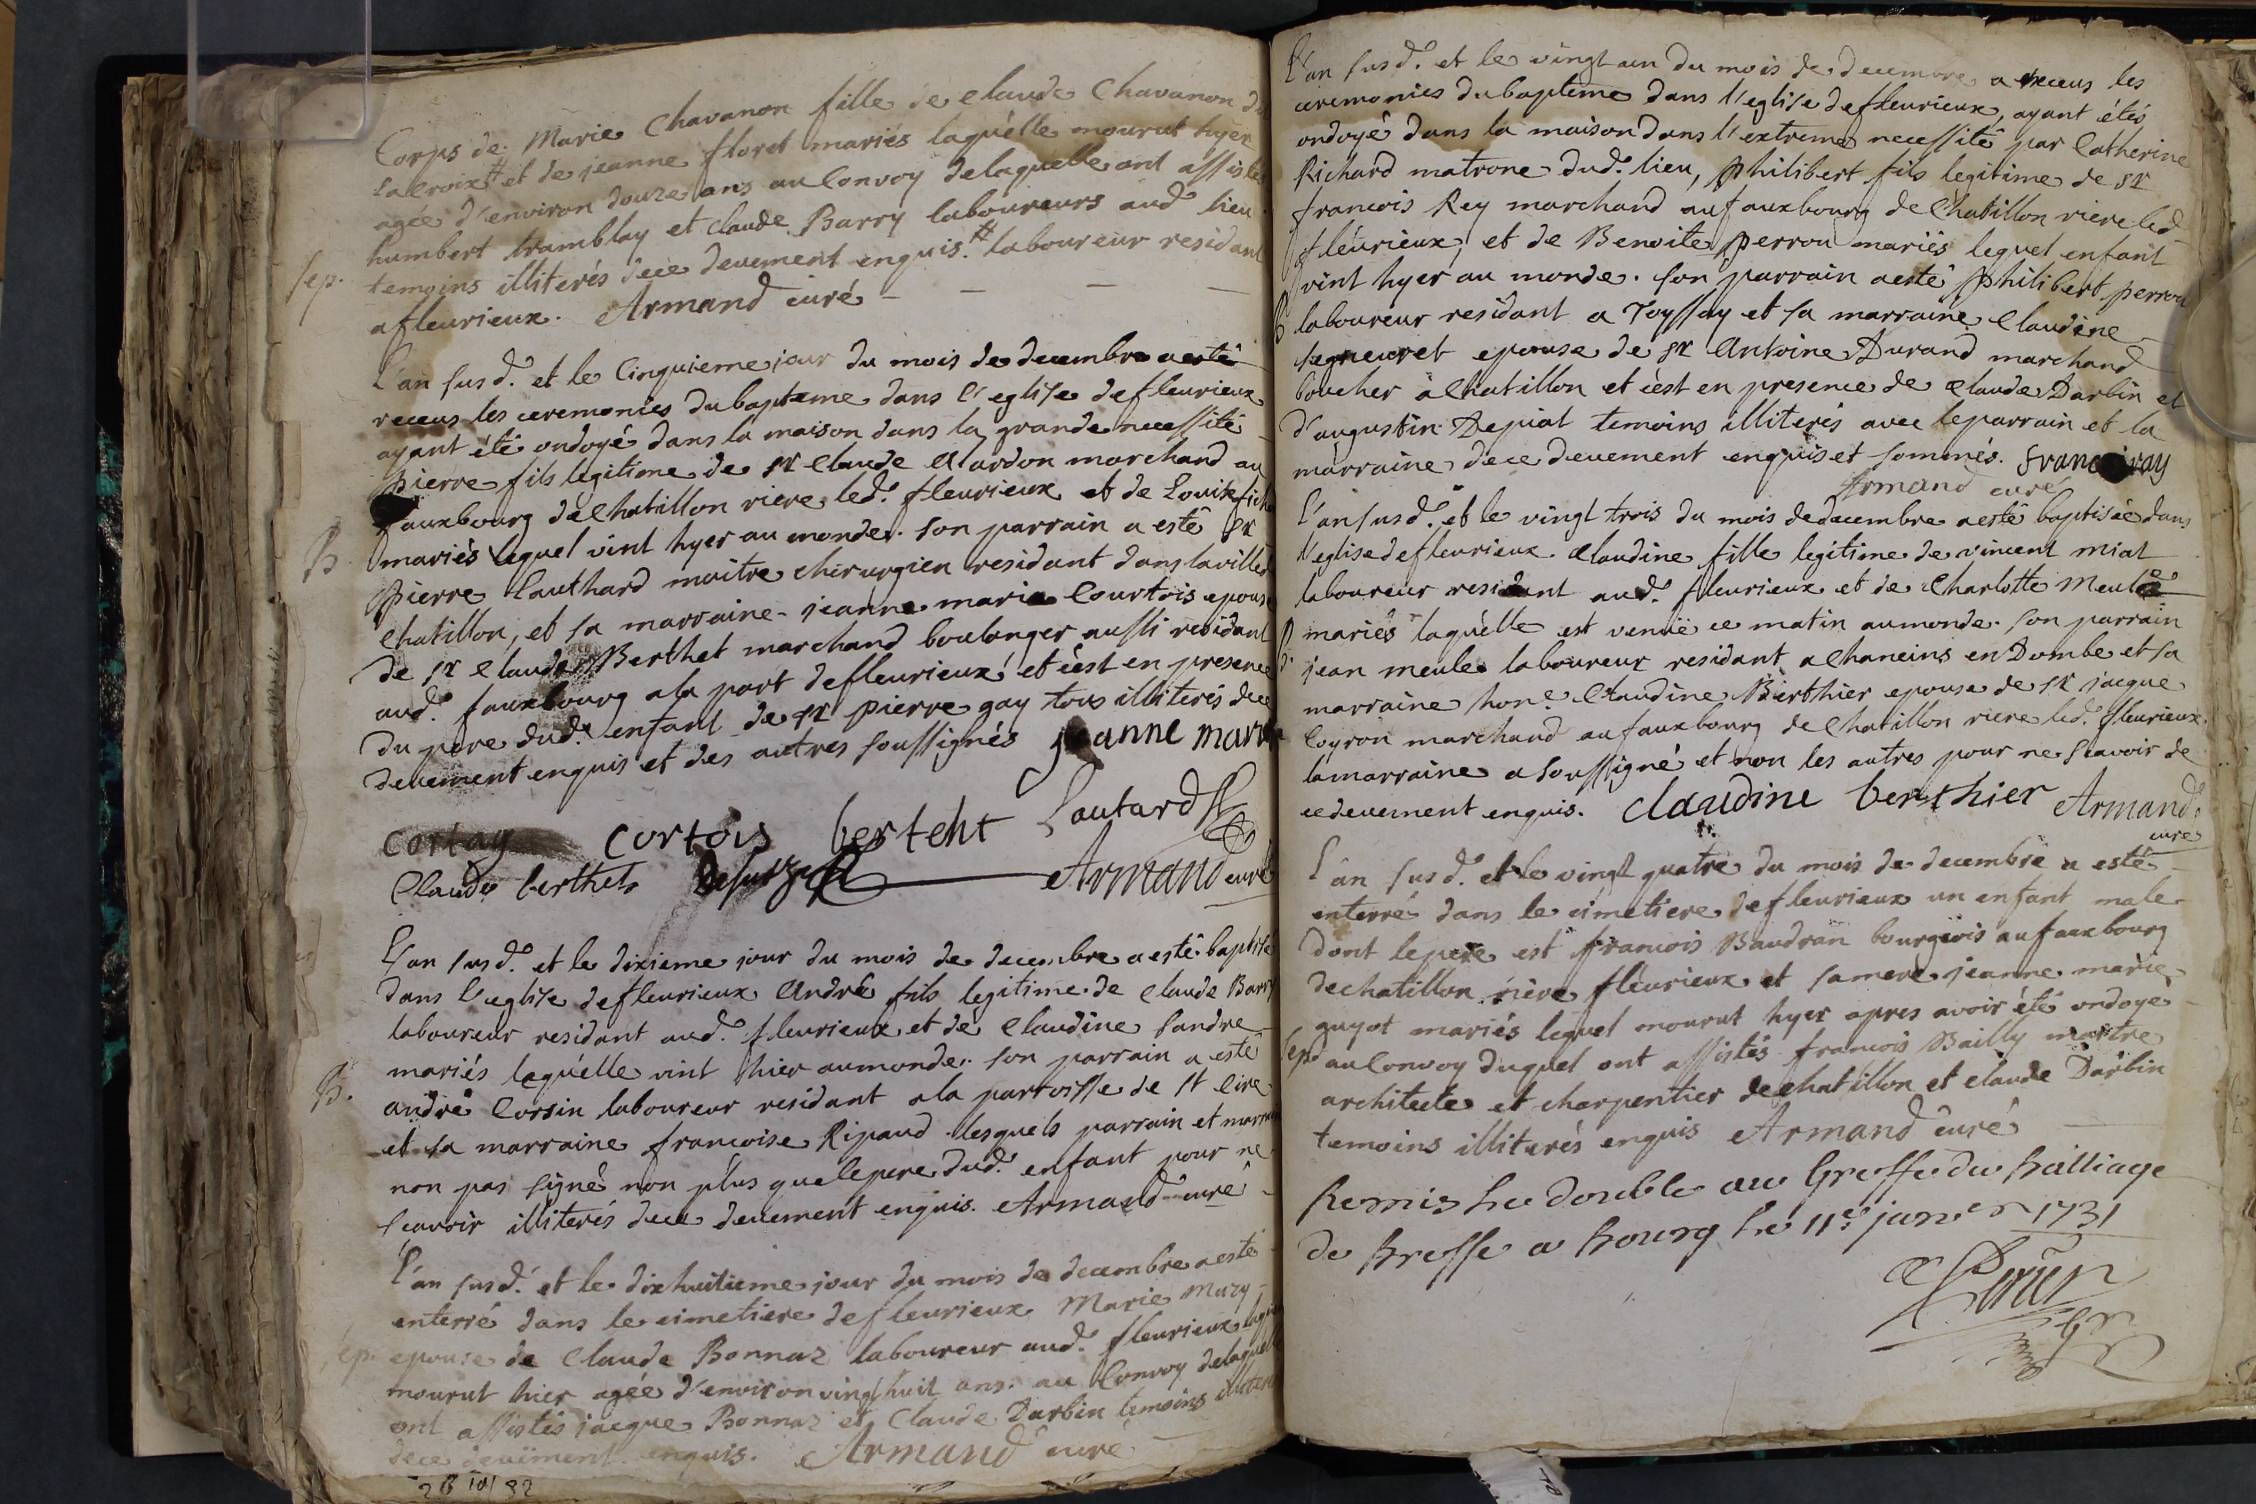 Corps de Marie Chavanon fille de Claude Chavanon de
Lacroix # et de jeanne floret mariés laquélle mourut hyer
agée d'environ douze ans au Convoy delaquélle ont assistés
humbert tramblay et claude Barry laboureurs aud. lieu
Sep. temoins illiterés dece deuement enquis. # laboureur residant
a fleurieux. Armand curé
L'an susd. et le Cinquieme jour du mois de decembre a esté
receus les ceremonies du bapteme dans l'eglise de fleurieux
ayant été ondoyé dans la maison dans la grande necessité
pierre fils legitime de sr Claude Alardon marchand au
fauxbourg de Chatillon riere led. fleurieux et de Louise
B mariés lequel vint hyer au monde. son parrain a esté sr
pierre Lauthard maitre chirurgien residant dans la ville de
Chatillon, et sa marraine jeanne marie Courtois epouse
de sr Claude Berthet marchand boulanger aussi residant
aud. fauxbourg a la part de fleurieux et c'est en presence
du pere dud. enfant de sr pierre gay tous illiterés dece
deuement enquis et des autres soussignés jeanne marie
cortay cortois berteht Lautard
Claude berthet Armand curé
L'an susd. et le dixieme jour du mois de decembre a esté baptisé
dans l'eglise de fleurieux André fils legitime de Claude Barry
laboureur residant aud. fleurieux et de Claudine Sandre
mariés laquélle vint hier au monde. son parrain a esté
B. andré Corsin laboureur residant a la parroisse de St Cire
et sa marraine francoise Ripaud lesquels parrain et marraine
non pas signé non plus que le pere dud. enfant pour ne
scavoir illiterés dece deuement enquis. Armand curé
L'an susd. et le dixhuitieme jour du mois de decembre a esté
enterré dans le cimetiere de fleurieux Marie Muzy
Sep. epouse de Claude Bonnaz laboureur aud. fleurieux laquelle
mourut hier agée d'environ vingt huit ans. au Convoy delaquelle
ont assistés jacque Bonnaz et Claude Darbin temoins illiterés
dece deuëment enquis. Armand curé
L'an susd. et le vingt un du mois de decembre a receus les
ceremonies du bapteme dans l'eglise de fleurieux, ayant étés
ondoyé dans la maison dans l'extreme necessité par Catherine
Richard matrone dud. lieu, philibert fils legitime de sr
francois Rey marchand au fauxbourg de Chatillon riere led.
fleurieux, et de Benoite perrou mariés lequel enfant
vint hyer au monde. son parrain a esté philibert perrou
B laboureur residant a Toyssay et sa marraine Claudine
segneuret epouse de sr Antoine Durand marchand
boucher à Chatillon et c'est en presence de Claude Darbin et
d'augustin Depiat temoins illiterés avec le parrain et la
marraine dece deuement enquis et sommés. francoi ray
Armand curé
L'an susd. et le vingt trois du mois de decembre a esté baptisée dans
l'eglise de fleurieux. Claudine fille legitime de vincent miat
laboureur residant aud. fleurieux et de Charlotte Meule
B mariés laquélle est venuë ce matin au monde. son parrain
jean meule laboureur residant a Chaneins en Dombe et sa
marraine hon.e Claudine Berthier epouse de sr jacque
Coyron marchand au fauxbourg de Chatillon riere led. fleurieux.
la marraine a soussigné et non les autres pour ne scavoir de
ce deuement enquis. claudine berthier Armand
curé
L'an susd. et le vingt quatre du mois de decembre a esté
enterré dans le cimetiere de fleurieux un enfant male
dont le pere est francois Baudran bourgeois au fauxbourg
de chatillon riere fleurieux et sa mere jeanne marie
guyot mariés lequel mourut hyer apres avoir été ondoyé
Sep. au Convoy duquel ont assistés francois Bailly maitre
architecte et charpentier de chatillon et claude Darbin
temoins illiterés enquis Armand curé
Remis Le double au Greffe du bailliage
de Bresse a Bourg Le 11e janver 1731